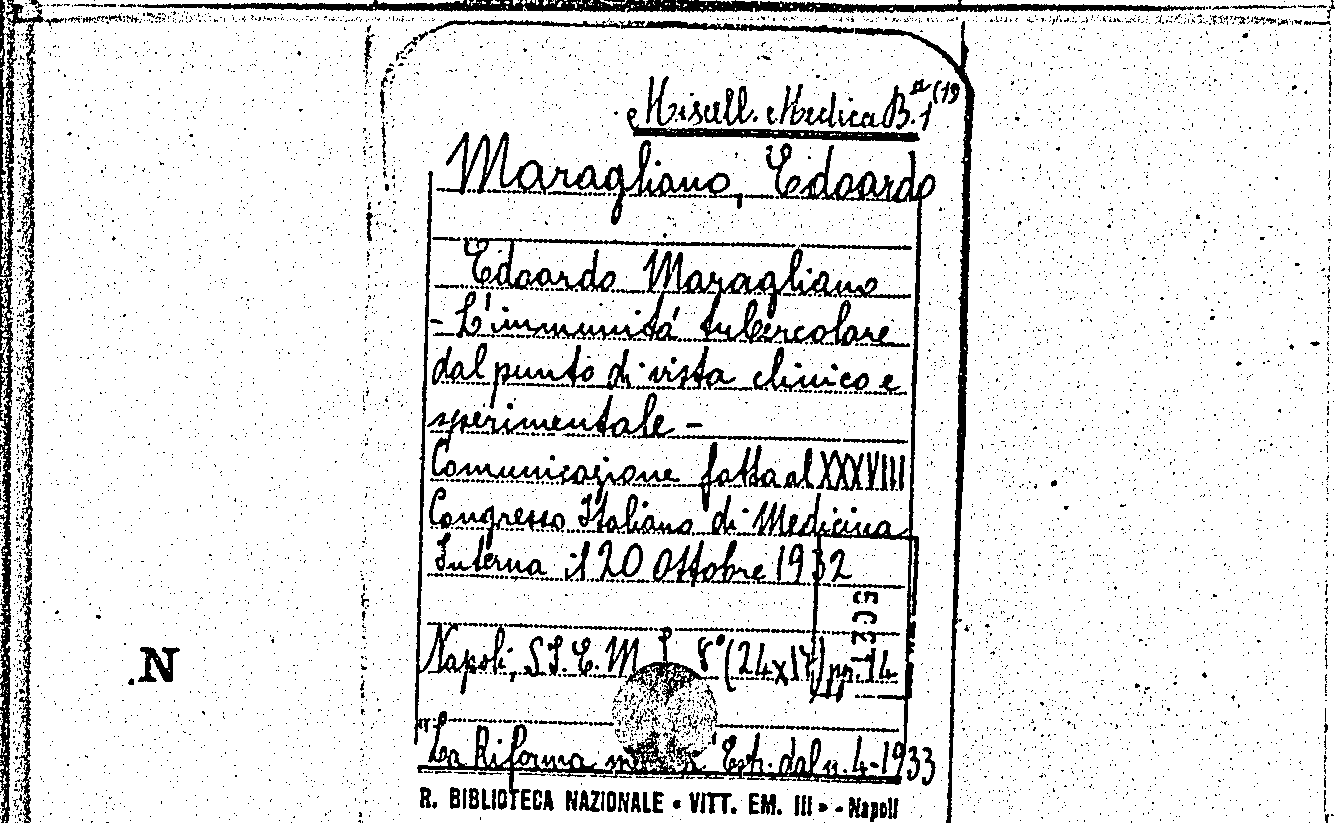 Miscell. Medica B.ª 1 (19
Maragliano, Edoardo
Edoardo Maragliano
- L'immunitá tubercolare
dal punto di vista clinico e
sperimentale -
Comunicazione fatta al XXXVIII
Congresso Italiano di Medicina
Interna il 20 Ottobre 1932
Napoli, S.I.E.M. 8° (24x17) pp. 14
N
"La Riforma Estr. dal n. 4-1933
R. BIBLIOTECA NAZIONALE « VITT. EM. III » - Napoli